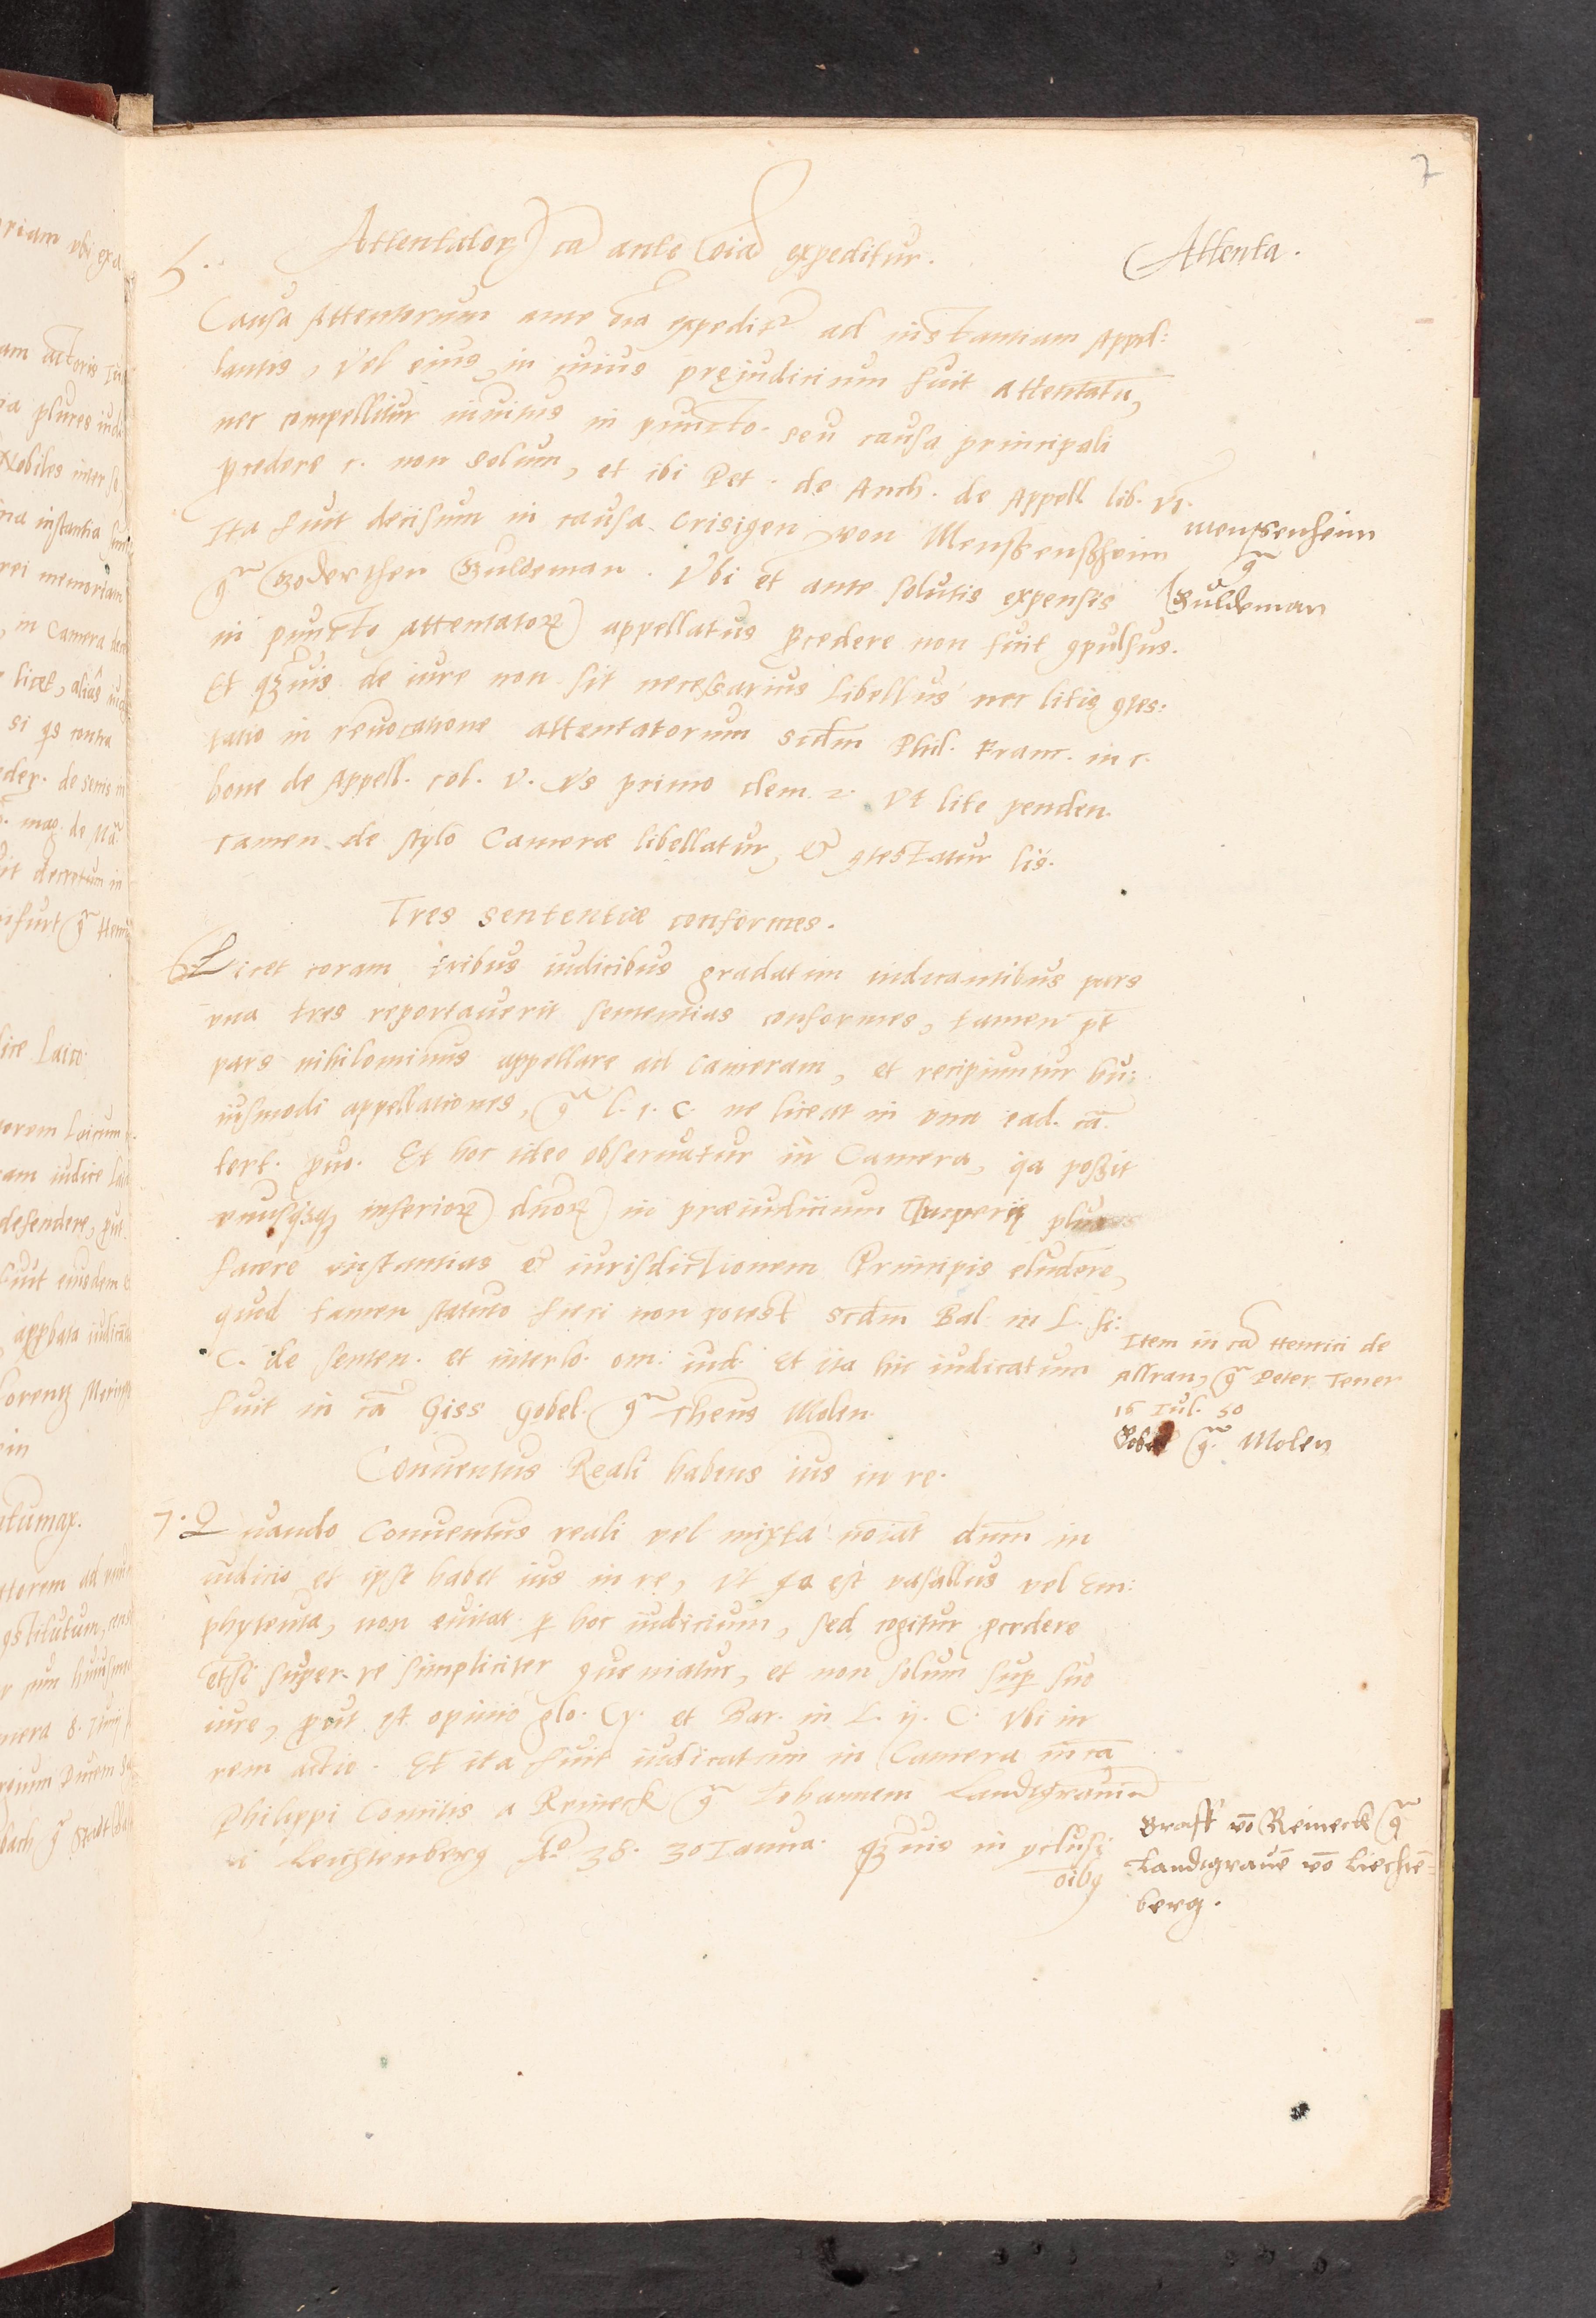 7
Attentatoꝝ cā ante oīa expeditur.
Attenta.
5.
Causa Attentorum ante oīa expedit᷑ ad instantiam Appel:
lantis, vel eius, in cuius pręiudicium fuit attentatū,
nec compellitur inuitus in puncto seu causa principali
ꝓcedere c. non solum, et ibi Pet. de Anch. de Appell lib. VI.
Ita fuit decisum in causa Crisigen von Menssenssheim
Menssenheim
cͣ Goderther Guldeman. Vbi et ante solutis expensis
cͣ
Guldeman
in puncto attentatoꝝ appellatus ꝓcedere non fuit ꝯpulsus.
Et qȝuis de iure non sit necessarius libellus nec litis ꝯtes:
tatio in reuocatione attentatorum scdm Phil. Franc. in c.
bone de Appell. col. v. vs primo clem. 2. vt lite penden.
tamen de stylo Cameræ libellatur, & ꝯtestatur lis.
Tres sententiæ conformes.
6 Licet coram tribus iudicibus gradatim iudicantibus pars
vna tres reportauerit sententias conformes, tamen pt̄
pars nihilominus appellare ad Cameram, et recipiuntur hu:
iusmodi appellationes, cͣ l. 1. C. ne liceat in vna ead. cā.
tert. ꝓuo. Et hoc ideo obseruatur in Camera, qa possit
vnusqsqȝ inferioꝝ dn̄oꝝ in præiudicium Imperij plures
facere instantias & iurisdictionem Principis eludere,
quod tamen statuto fieri non potest scdm Bal. in L. fi:
C. de senten. et interlo. om: iud. Et ita hic iudicatum
fuit in cā Giss Gobel. cͣ Theus Molen.
Item in cā Henrici de
Assran, cͣ Peter Tener
16 Iul. 50
Gobel cͣ Molen
Conuentus Reali habens ius in re.
7. Quando Conuentus reali vel mixta noīat dnm in
iudicio et ipse habet ius in re, vt qa est vasallus vel Em:
phyteuta, non euitat ꝑ hoc iudicium, sed cogitur ꝓcedere
etsi super re simpliciter ꝯueniatur, et non solum suꝑ suo
iure, ꝓut st̄ opinio glo. Cy. et Bar. in L. ij. C. vbi in
rem actio. Et ita fuit iudicatum in Camera in cā
Philippi Comitis a Reineck cͣ Johannem Landtgrauiū
a Leichtenberg Aº 38. 30 Janua. qȝuis in ꝯclusi:
oībꝯ
Graff vō Reineck cͣ
Landtgrauē vō Liechtē-
berg.